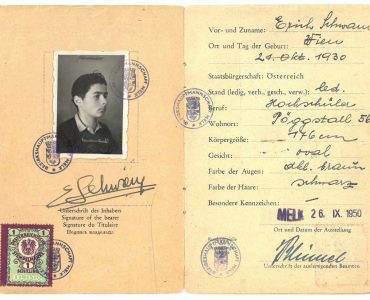 E Schwarz
Unterschrift des Inhabers
Signature of the bearer
Signature du Titulaire
Подпись владельца
1
SCHILLING
BEZIRKSHAUPTMANNSCHAFT
MELK
Vor- und Zuname: Erich Schwarz
Wien
Ort und Tag der Geburt:
21. Okt. 1930
Staatsbürgerschaft: Österreich
Stand (ledig, verh., gesch., verw.): led.
Beruf: Hochschüler
Wohnort: Pöggstall 56
Körpergröße: 176 cm
Gesicht: oval
Farbe der Augen: dkl. braun
Farbe der Haare: schwarz
Besondere Kennzeichen:
MELK 26. IX. 1950
Ort und Datum der Ausstellung
Unterschrift des ausfertigenden Beamten